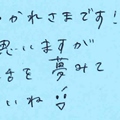 つかれさまです!
思いますが
活を夢みて
いいね